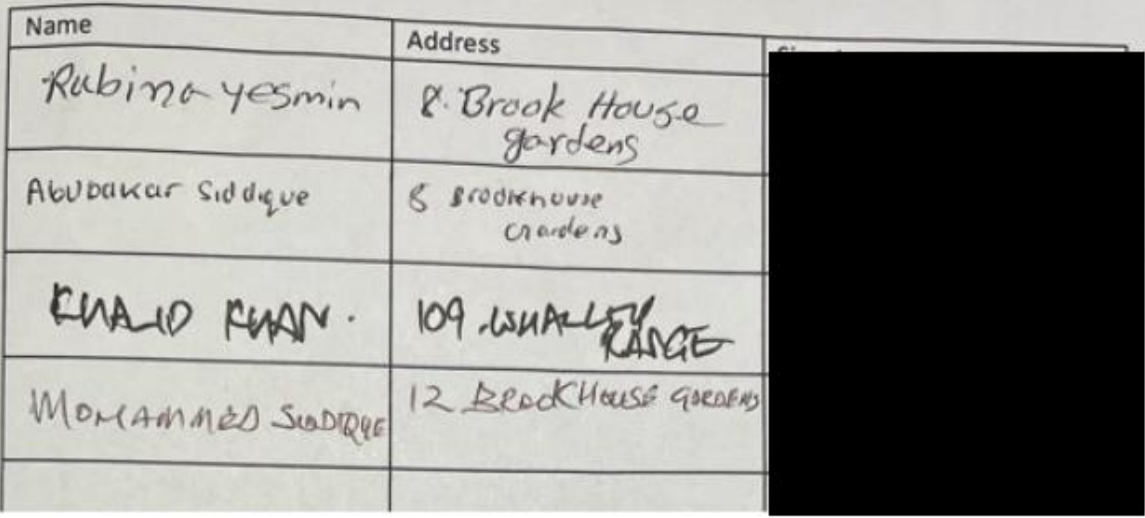 Name
Address
Rubina yesmin
8. Brook House
gardens
Abubakar Siddique
8 Brookhouse
Gardens
KHALID KHAN.
109. WHALLEY
RANGE
MOHAMMED SIDDIQUE
12 BROOKHOUSE GARDENS